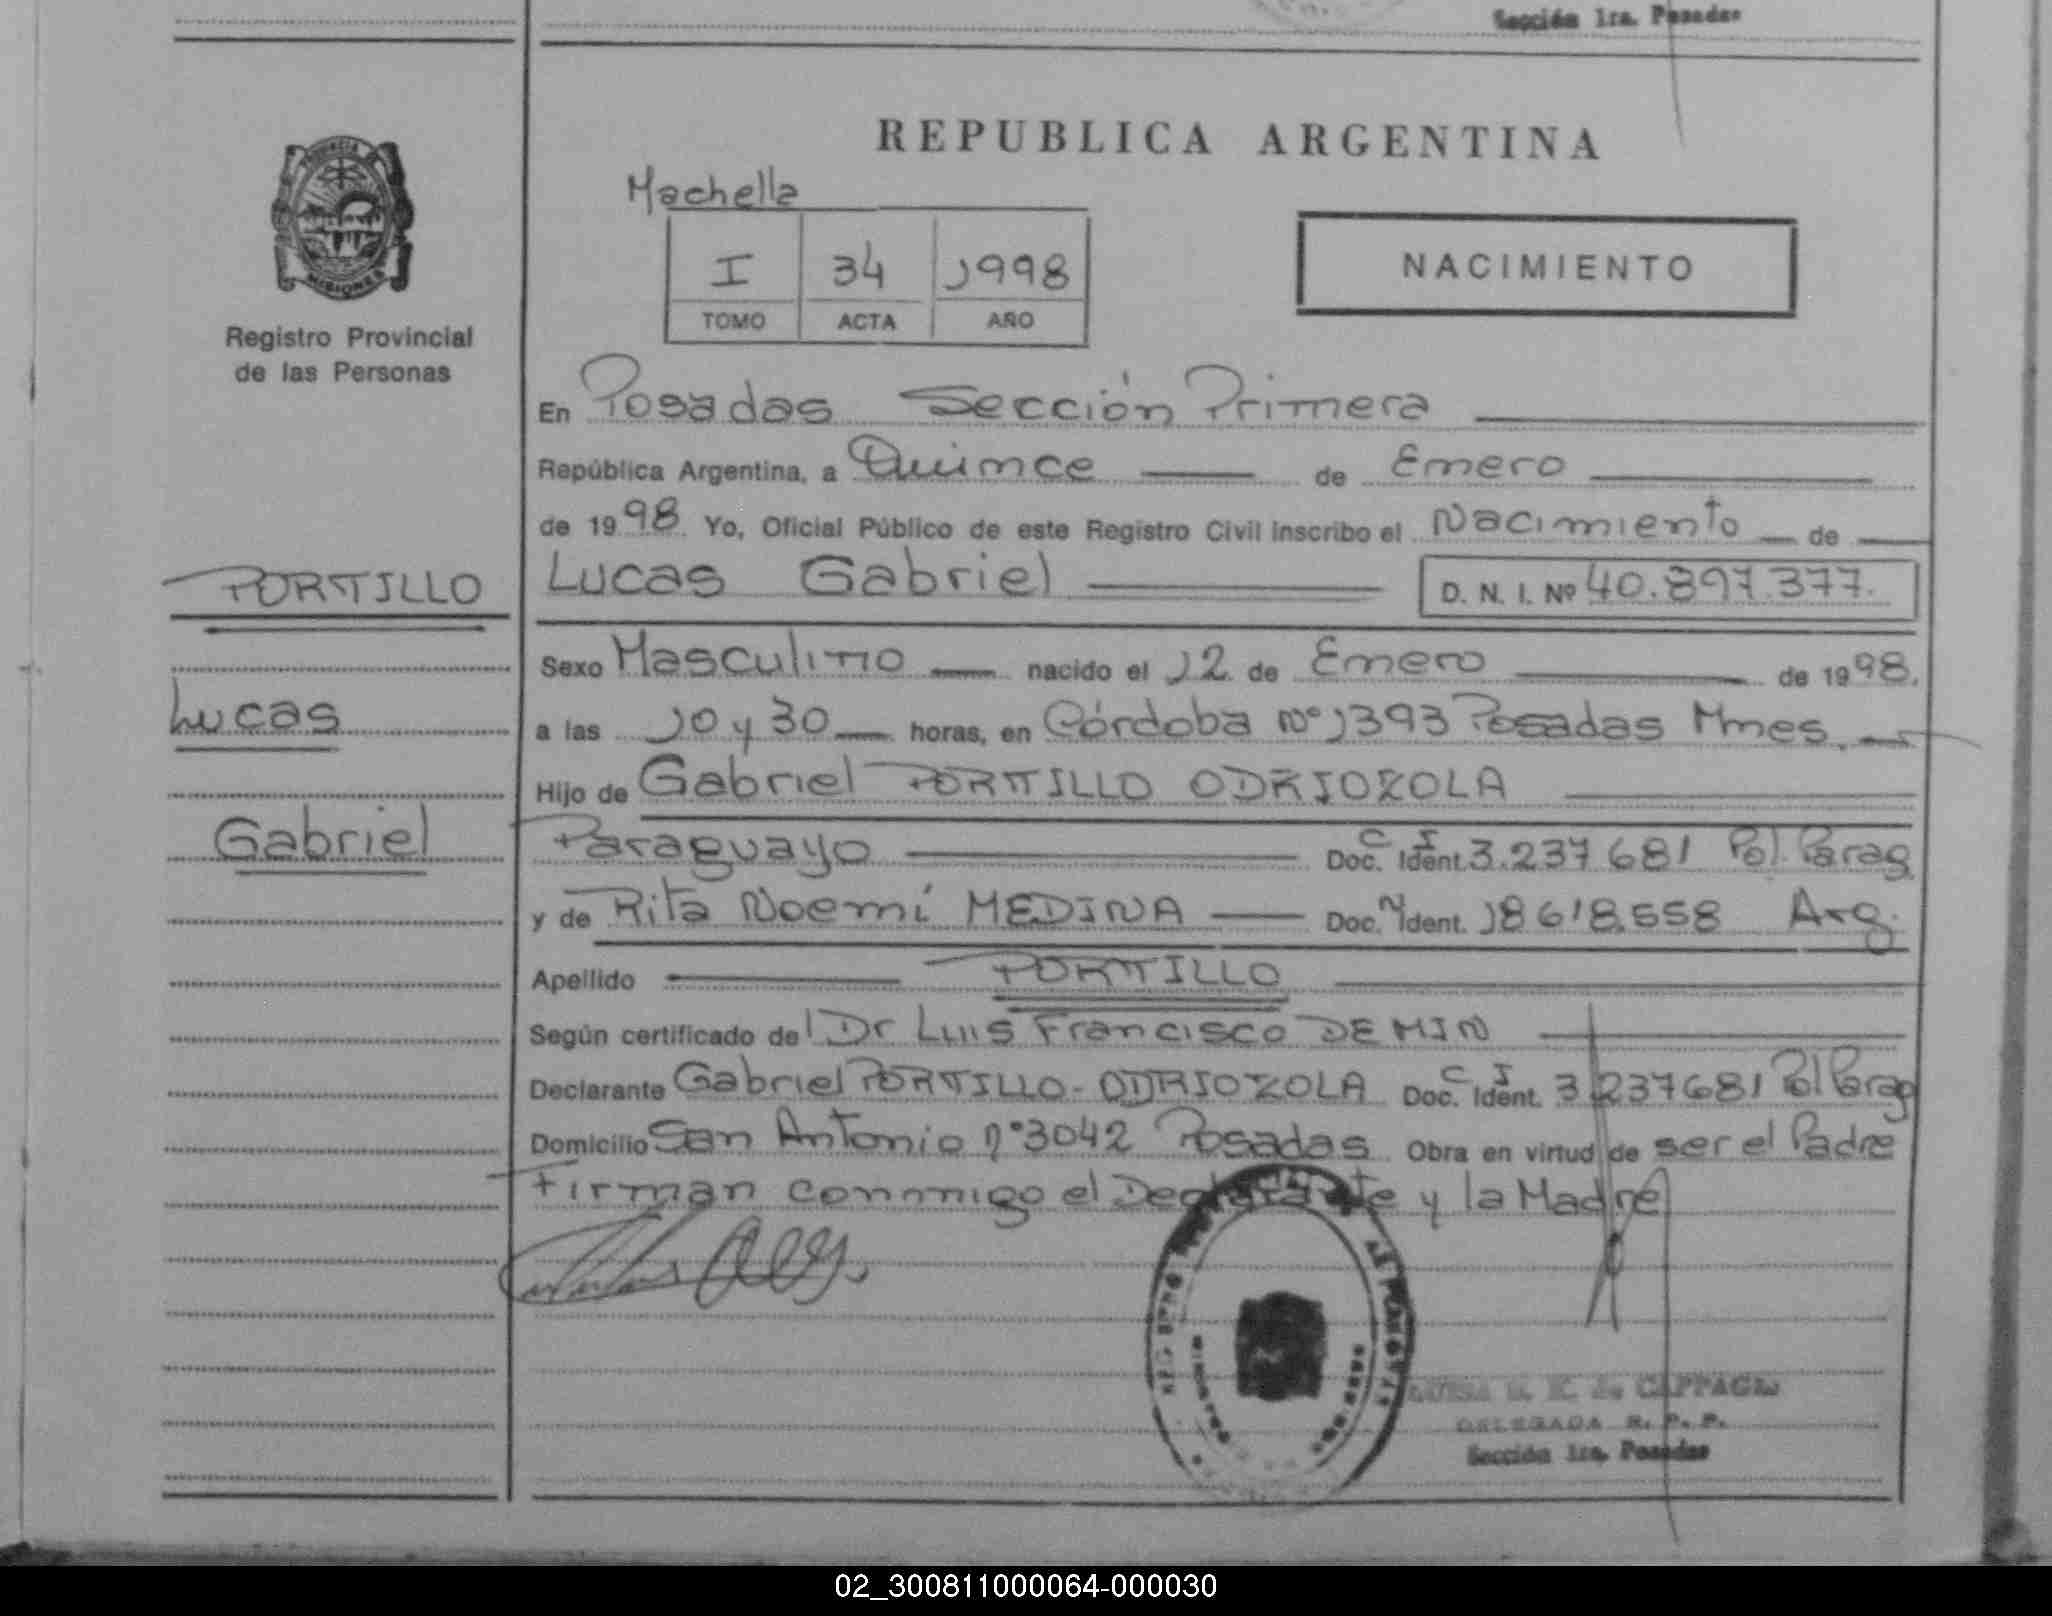 Sección 1ra. Posadas
REPUBLICA ARGENTINA
Machella
I 34 1998
TOMO ACTA AÑO
NACIMIENTO
PROVINCIA DE
MISIONES
Registro Provincial
de las Personas
En Posadas Sección Primera
República Argentina, a Quince de Enero
de 1998 Yo, Oficial Público de este Registro Civil inscribo el Nacimiento de
PORTILLO
Lucas Gabriel D. N. I. Nº 40.897.377.
Sexo Masculino nacido el 12 de Enero de 1998.
Lucas
a las 10 y 30 horas, en Córdoba Nº 1393 Posadas Mnes.
Hijo de Gabriel PORTILLO ODRIOZOLA
Gabriel
Paraguayo Doc. Ident. C I 3.237681 Pol. Parag.
y de Rita Noemí MEDINA Doc. Ident. 18618.558 Arg.
Apellido PORTILLO
Según certificado del Dr Luis Francisco DEMIN
Declarante Gabriel PORTILLO - ODRIOZOLA Doc. Ident. C I 3237681 Pol Parag
Domicilio San Antonio nº 3042 Posadas Obra en virtud de ser el Padre
Firman conmigo el Declarante y la Madre
DELEGADA R. P. P.
Sección 1ra. Posadas
02_300811000064-000030